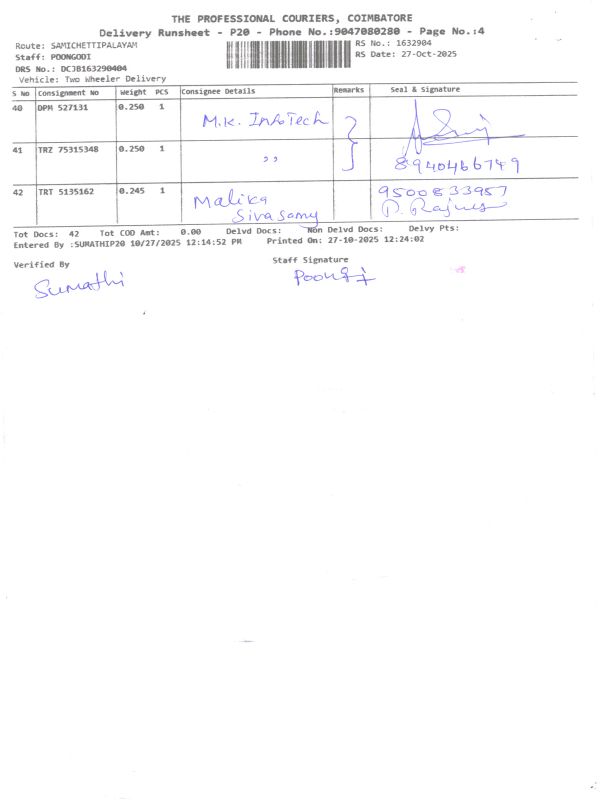 THE PROFESSIONAL COURIERS, COIMBATORE
Delivery Runsheet - P20 - Phone No.:9047080280 - Page No.:4
Route: SAMICHETTIPALAYAM RS No.: 1632904
Staff: POONGODI RS Date: 27-Oct-2025
DRS No.: DCJB163290404
Vehicle: Two Wheeler Delivery
S No Consignment No Weight PCS Consignee Details Remarks Seal & Signature
40 DPM 527131 0.250 1 M.K. InfoTech
41 TRZ 75315348 0.250 1 ,, 8940466749
42 TRT 5135162 0.245 1 Malika 9500833957
Sivasamy
Tot Docs: 42 Tot COD Amt: 0.00 Delvd Docs: Non Delvd Docs: Delvy Pts:
Entered By :SUMATHIP20 10/27/2025 12:14:52 PM Printed On: 27-10-2025 12:24:02
Verified By Staff Signature
Sumathi